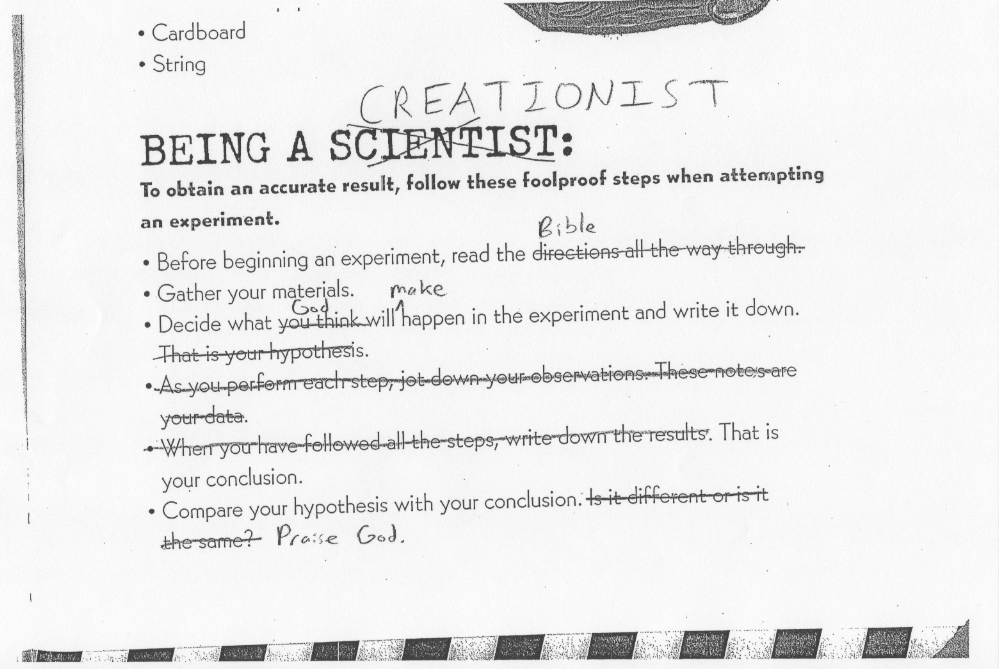 • Cardboard
• String
CREATIONIST
BEING A SCIENTIST:
To obtain an accurate result, follow these foolproof steps when attempting
an experiment.
Bible
• Before beginning an experiment, read the directions all the way through.
• Gather your materials. make
God
• Decide what you think will happen in the experiment and write it down.
That is your hypothesis.
• As you perform each step, jot down your observations. These notes are
your data.
• When you have followed all the steps, write down the results. That is
your conclusion.
• Compare your hypothesis with your conclusion. Is it different or is it
the same? Praise God.